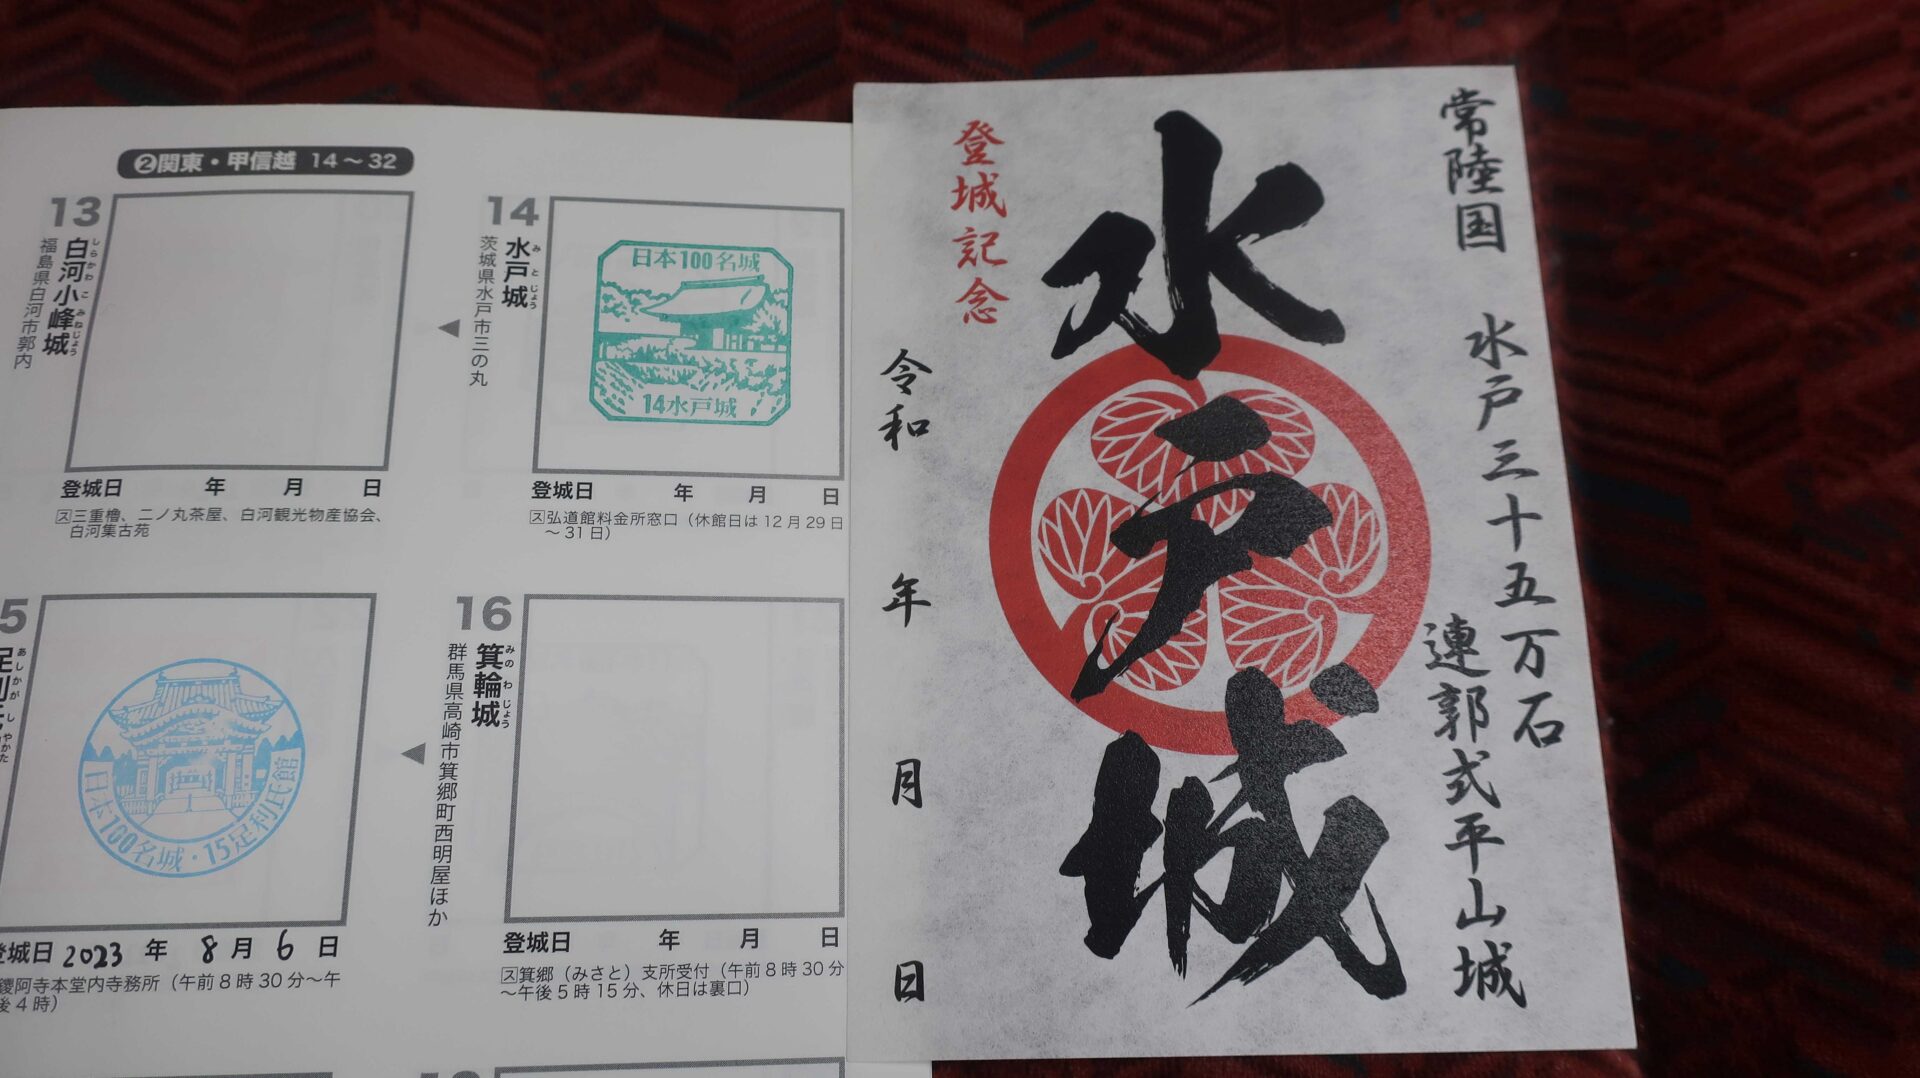 ❷関東・甲信越 14～32
13
白河小峰城
しらかわこみねじょう
福島県白河市郭内
登城日 年 月 日
ス三重櫓、二ノ丸茶屋、白河観光物産協会、
白河集古苑
14
水戸城
みとじょう
茨城県水戸市三の丸
日本100名城
14水戸城
登城日 年 月 日
ス弘道館料金所窓口（休館日は12月29日
～31日）
5
あしかがしやかた
日本100名城・15足利氏館
登城日 2023 年 8 月 6 日
鑁阿寺本堂内寺務所（午前8時30分～午
後4時）
16
箕輪城
みのわじょう
群馬県高崎市箕郷町西明屋ほか
登城日 年 月 日
ス箕郷（みさと）支所受付（午前8時30分
～午後5時15分、休日は裏口）
常陸国 水戸三十五万石
連郭式平山城
水戸城
登城記念
令和 年 月 日